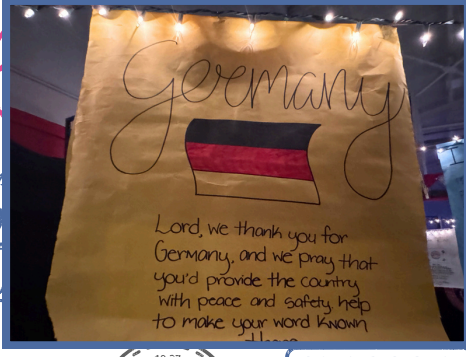 Germany
Lord, we thank you for
Germany, and we pray that
you'd provide the country
with peace and safety, help
to make your word known